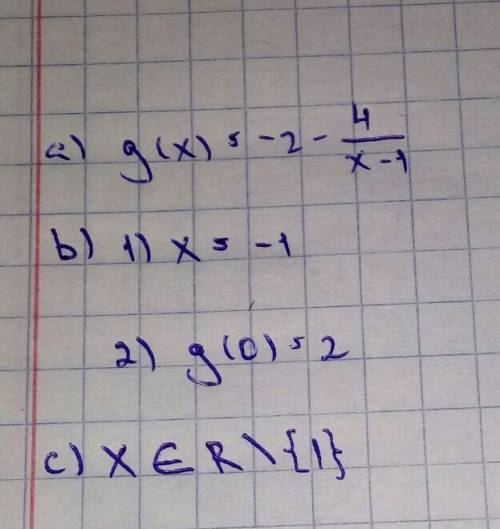 a) g(x) = -2 - \frac{4}{x-1}
b) 1) x = -1
2) g(0) = 2
c) x ∈ R \ {1}